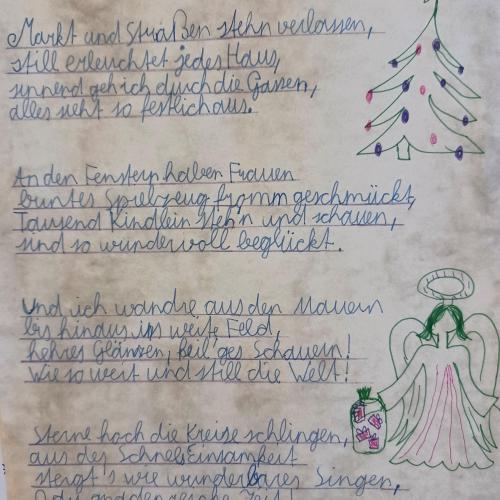 Markt und Straßen stehn verlassen,
still erleuchtet jedes Haus,
sinnend geh ich durch die Gassen,
alles sieht so festlich aus.
An den Fenstern haben Frauen
buntes Spielzeug fromm geschmückt,
Tausend Kindlein steh'n und schauen,
sind so wundervoll beglückt.
Und ich wandre aus den Mauern
bis hinaus ins weite Feld,
hehres Glänzen, heil'ges Schauern!
Wie so weit und still die Welt!
Sterne hoch die Kreise schlingen,
aus des Schnees Einsamkeit
steigt's wie wunderbares Singen,